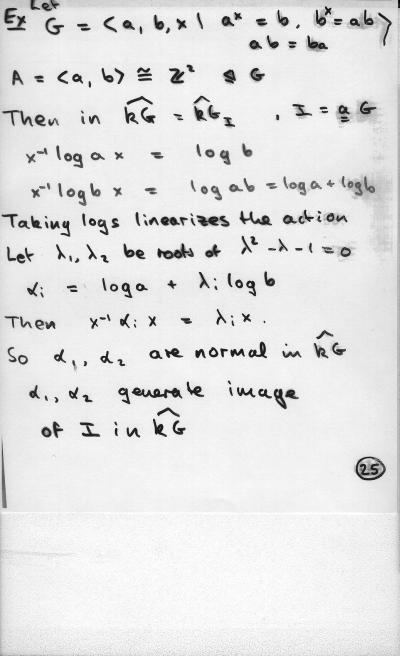 Let
Ex G = < a, b, x | a^x = b, b^x = ab
ab = ba >
A = <a, b> ≅ ℤ² ⊴ G
Then in k̂G = k̂G_I , I = a̲ G
x⁻¹ log a x = log b
x⁻¹ log b x = log ab = log a + log b
Taking logs linearizes the action
Let λ₁, λ₂ be roots of λ² - λ - 1 = 0
αᵢ = log a + λᵢ log b
Then x⁻¹ αᵢ x = λᵢ x.
So α₁, α₂ are normal in k̂G
α₁, α₂ generate image
of I in k̂G
25